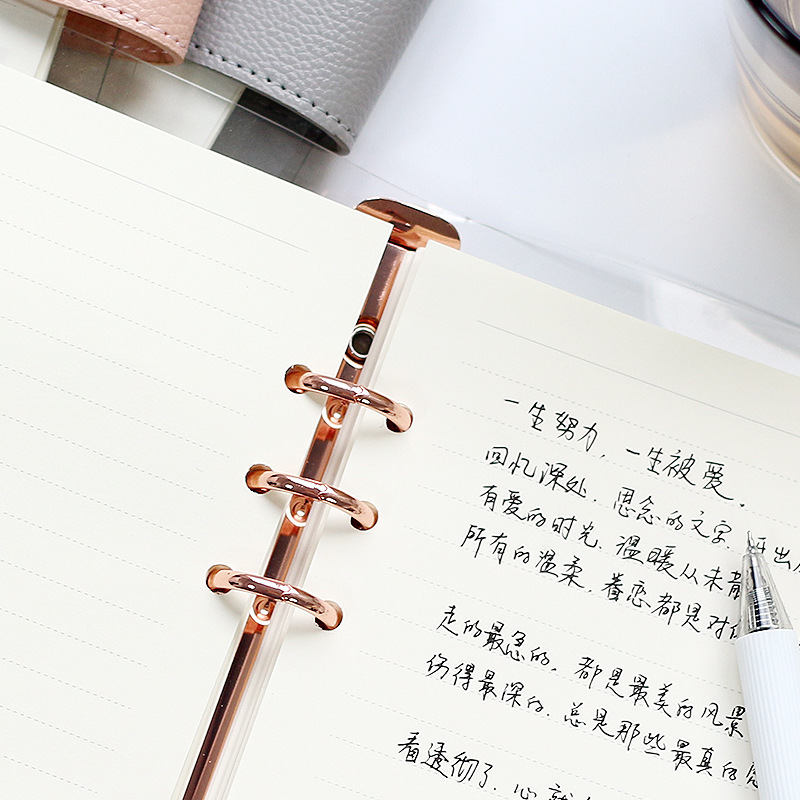 一生努力,一生被爱.
回忆深处.思念的文字.开出
有爱的时光.温暖从未
所有的温柔.眷恋都是对
走的最急的,都是最美的风景
伤得最深的.总是那些最真的
看透彻了.心就